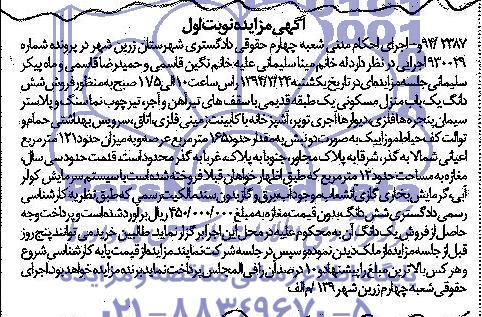 آگهی مزایده نوبت اول
۹۴/۲۳۸۷و-اجرای احکام مدنی شعبه چهارم حقوقی دادگستری شهرستان زرین شهر در پرونده شماره
۹۳۰۰۴۹اجرایی در نظر دارد له خانم مینا سلیمانی علیه خانم نگین قاسمی و حمیدرضا قاسمی و ماه پیکر
سلیمانی جلسه مزایده‌ای در تاریخ یکشنبه ۱۳۹۴/۳/۲۴ راس ساعت ۱۰ الی ۱۱/۵ صبح به منظور فروش شش
دانگ یک باب منزل مسکونی یک طبقه قدیمی با سقف های تیرآهن و آجر، تیر چوب نما سنگ و پلاستر
سیمان پنجره ها فلزی، دیوارها آجری توپر، آشپزخانه با کابینت زمینی فلزی، اتاق، سرویس بهداشتی حمام و
توالت کف حیاط موزاییک به صورت دونبش به مقدار حدود ۱۶۵ مترمربع عرصه و به میزان حدود ۱۲۱ مترمربع
اعیانی شمالا به گذر، شرقا به پلاک مجاور، جنوبا به پلاک، غربا به گذر محدود است. قدمت حدود سی سال،
مغازه به مساحت حدود ۱۲ مترمربع که طبق اظهار خواهان قبلا فروخته شده است با سیستم سرمایش کولر
آبی، گرمایش بخاری گازی، انشعاب موجود آب، برق و گاز بدون سند مالکیت رسمی که طبق نظریه کارشناسی
رسمی دادگستری شش دانگ بدون قیمت مغازه به مبلغ ۴۵۰/۰۰۰/۰۰۰ ریال برآورد شده است و پرداخت وجه
حاصل از فروش یک دانگ آن به محکوم علیه در محل این اجرا برگزار نماید. طالبین خرید می توانند پنج روز
قبل از جلسه مزایده از ملک دیدن نموده و سپس در جلسه شرکت نمایند. مزایده از قیمت پایه کارشناسی شروع
و هر کس بالاترین مبلغ را پیشنهاد و ۱۰ درصد آن را فی المجلس پرداخت نماید برنده مزایده خواهد بود. اجرای
حقوقی شعبه چهارم زرین شهر ۱۳۹/م الف
۰۲۱-۸۸۳۴۹۶۷۰-۵